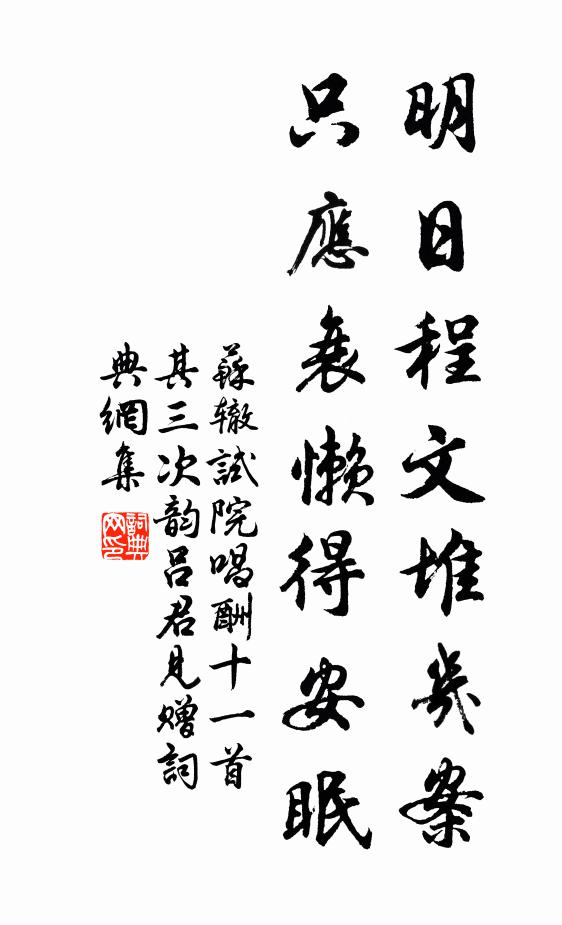 明日程文堆几案
只應衰懶得安眠
蘇辙試院唱酬十一首
其三次韵吕君見赠詞
典網集
詞典
网印